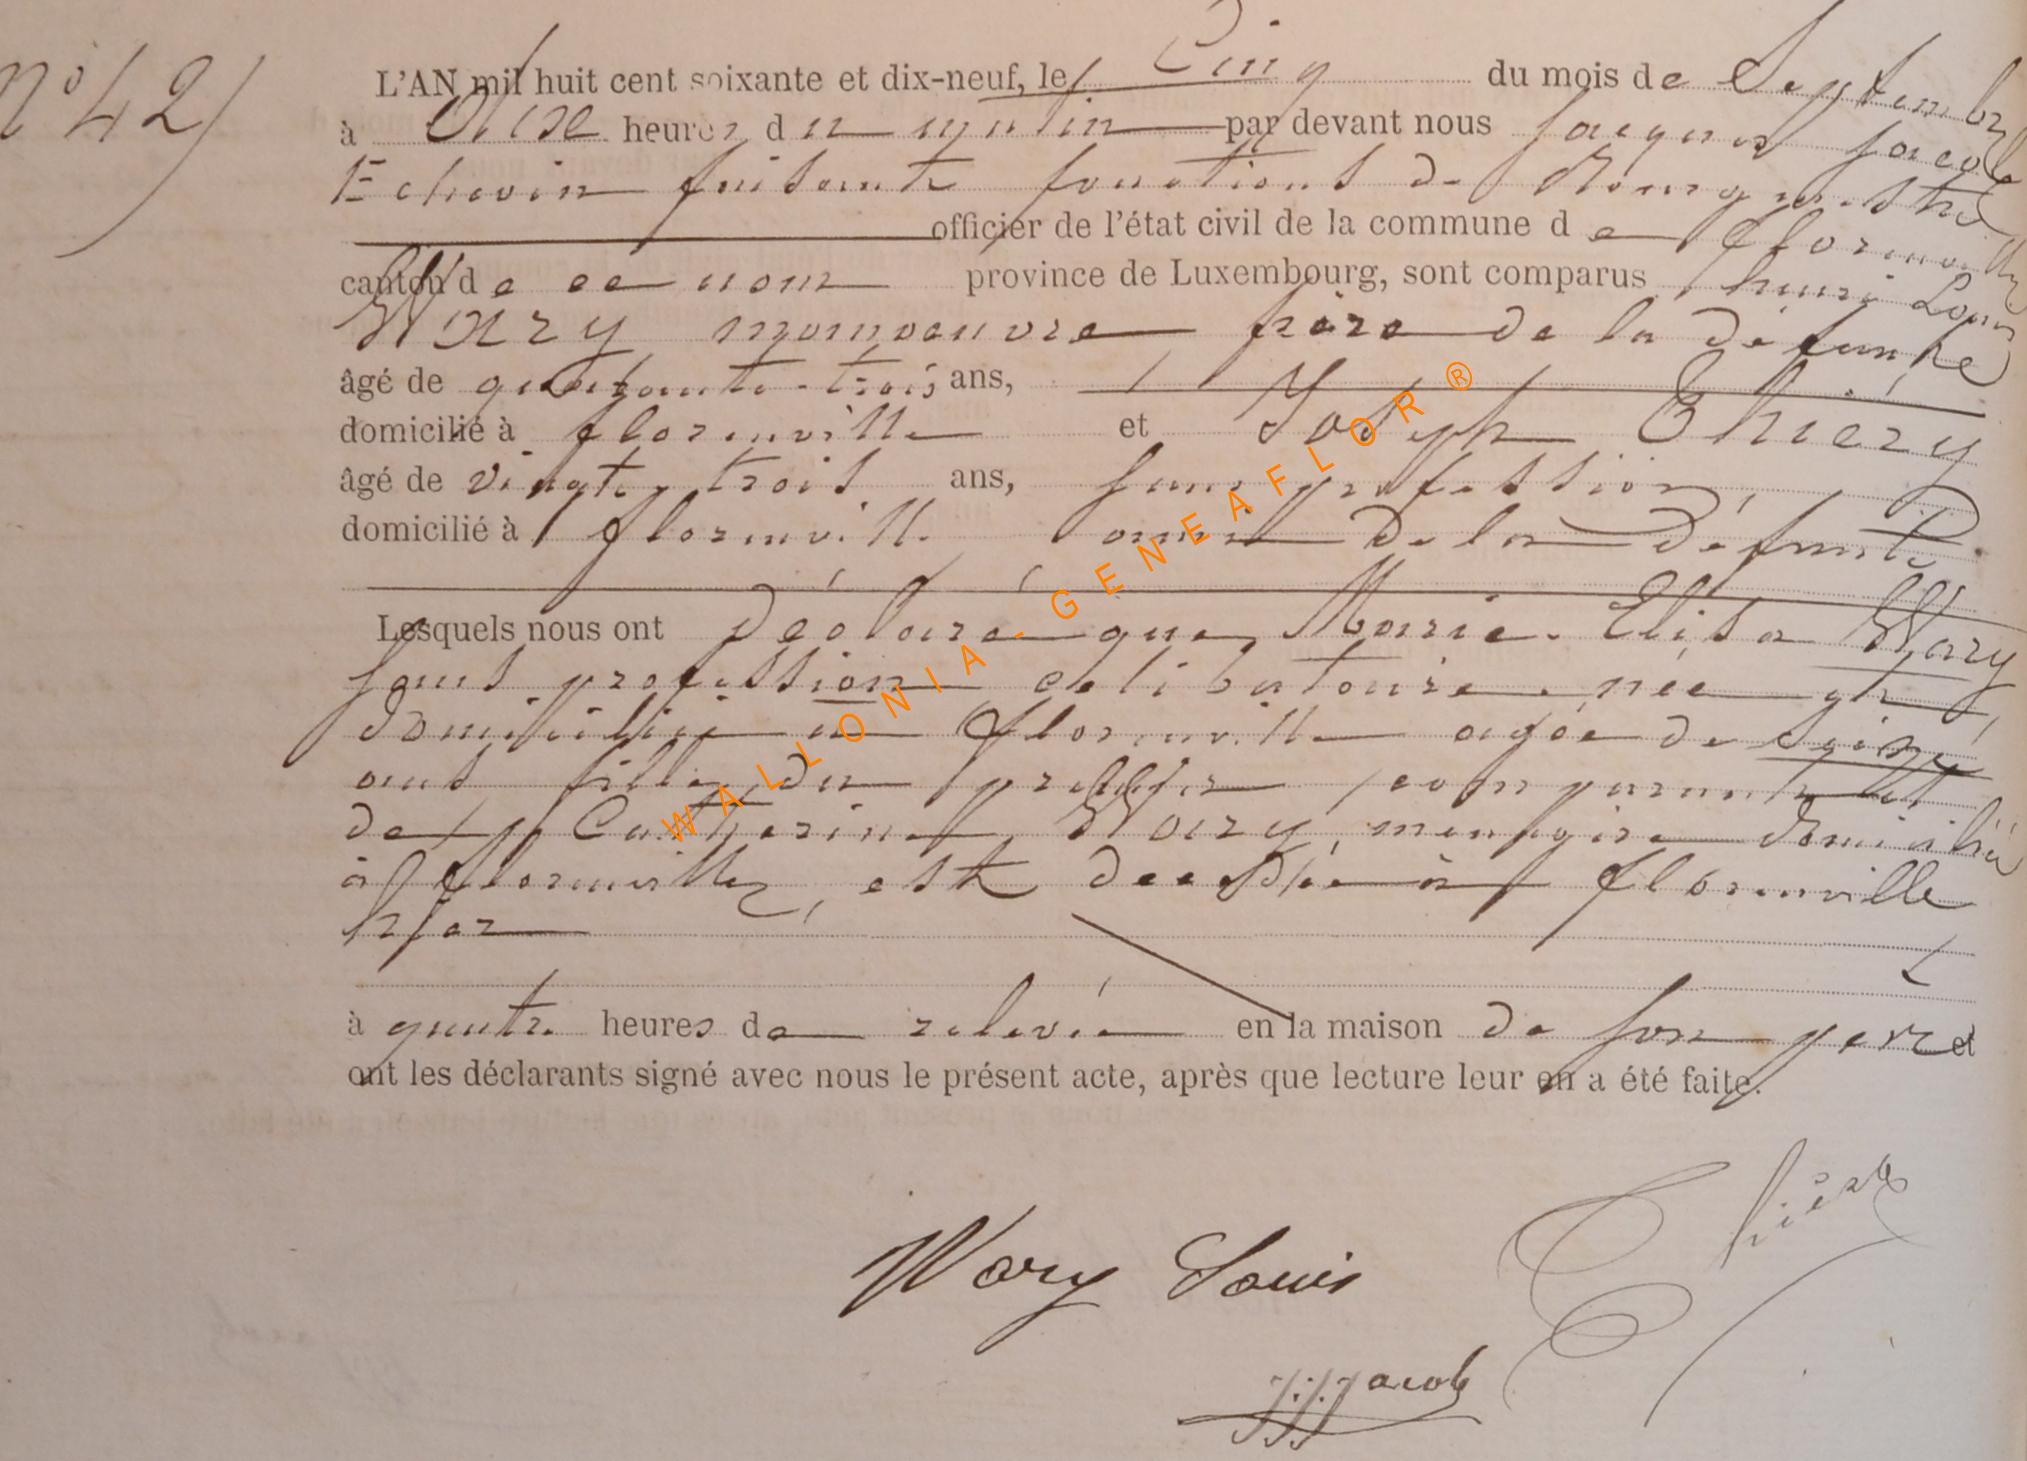 N° 42
L'AN mil huit cent soixante et dix-neuf, le Cinq du mois de Septembre
à Onze heures du matin par devant nous Jacques Jacob
Echevin faisante fonctions de Bourgmestre
officier de l'état civil de la commune de florenville
canton de ce nom province de Luxembourg, sont comparus henri Louis
Wary manoeuvre père de la défunte
âgé de quarante-trois ans,
domicilié à florenville et Joseph Thiéry
âgé de vingt-trois ans, sans profession,
domicilié à florenville ami de la défunte
Lesquels nous ont déclaré que Marie Elisa Wary
sans profession celibataire née et
domiciliée à florenville agée de seize
ans fille du premier comparant et
de Catherine Wary menagère domiciliée
à florenville, est decedée à florenville
hier
à quatre heures de relevée en la maison de son père et
ont les déclarants signé avec nous le présent acte, après que lecture leur en a été faite.
Wary Louis
Thiéry
J.J. Jacob
WALLONIA - GENEAFLOR ®